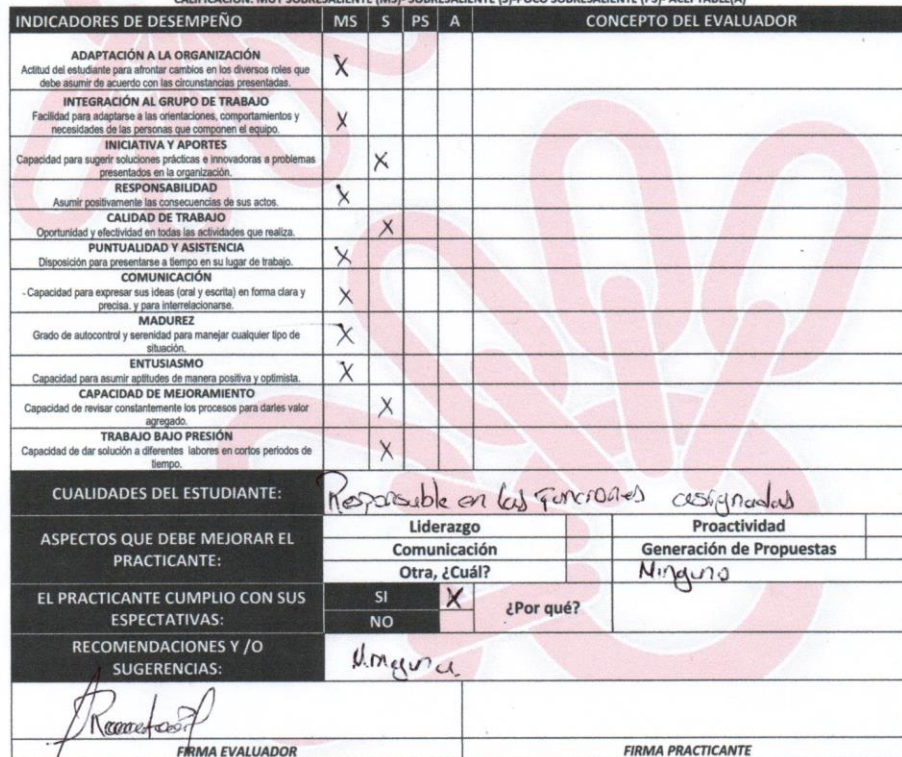 CALIFICACIÓN: MUY SOBRESALIENTE (MS)- SOBRESALIENTE (S)-POCO SOBRESALIENTE (PS)- ACEPTABLE(A)
INDICADORES DE DESEMPEÑO MS S PS A CONCEPTO DEL EVALUADOR
ADAPTACIÓN A LA ORGANIZACIÓN
Actitud del estudiante para afrontar cambios en los diversos roles que X
debe asumir de acuerdo con las circunstancias presentadas.
INTEGRACIÓN AL GRUPO DE TRABAJO
Facilidad para adaptarse a las orientaciones, comportamientos y X
necesidades de las personas que componen el equipo.
INICIATIVA Y APORTES
Capacidad para sugerir soluciones prácticas e innovadoras a problemas X
presentados en la organización.
RESPONSABILIDAD X
Asumir positivamente las consecuencias de sus actos.
CALIDAD DE TRABAJO X
Oportunidad y efectividad en todas las actividades que realiza.
PUNTUALIDAD Y ASISTENCIA X
Disposición para presentarse a tiempo en su lugar de trabajo.
COMUNICACIÓN
- Capacidad para expresar sus ideas (oral y escrita) en forma clara y X
precisa. y para interrelacionarse.
MADUREZ
Grado de autocontrol y serenidad para manejar cualquier tipo de X
situación.
ENTUSIASMO X
Capacidad para asumir aptitudes de manera positiva y optimista.
CAPACIDAD DE MEJORAMIENTO
Capacidad de revisar constantemente los procesos para darles valor X
agregado.
TRABAJO BAJO PRESIÓN
Capacidad de dar solución a diferentes labores en cortos periodos de X
tiempo.
CUALIDADES DEL ESTUDIANTE: Responsable en las funciones asignadas
ASPECTOS QUE DEBE MEJORAR EL
PRACTICANTE:
Liderazgo Proactividad
Comunicación Generación de Propuestas
Otra, ¿Cuál? Ninguno
EL PRACTICANTE CUMPLIO CON SUS
ESPECTATIVAS:
SI X ¿Por qué?
NO
RECOMENDACIONES Y /O
SUGERENCIAS: Ninguna.
FIRMA EVALUADOR FIRMA PRACTICANTE